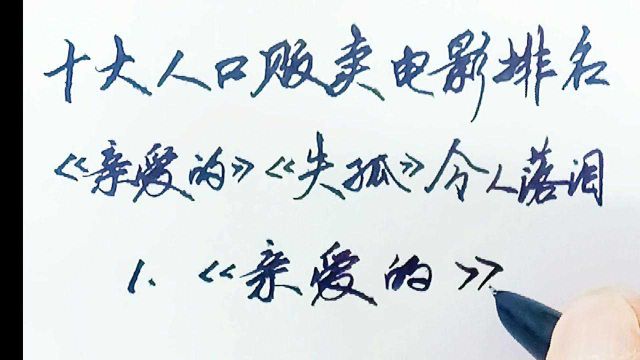 十大人口贩卖电影排名
《亲爱的》《失孤》令人落泪
1.《亲爱的》